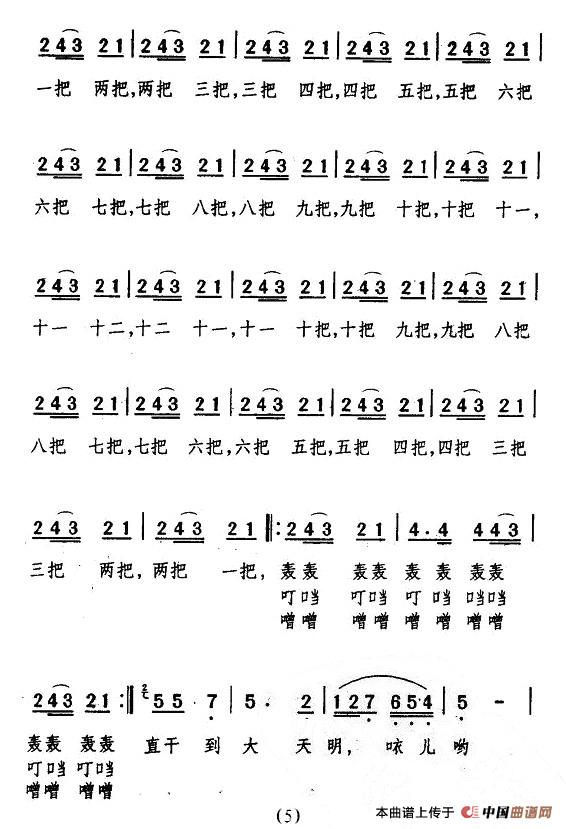 2 4 3 2 1 | 2 4 3 2 1 | 2 4 3 2 1 | 2 4 3 2 1 | 2 4 3 2 1 |
一把 两把,两把 三把,三把 四把,四把 五把,五把 六把
2 4 3 2 1 | 2 4 3 2 1 | 2 4 3 2 1 | 2 4 3 2 1 | 2 4 3 2 1 |
六把 七把,七把 八把,八把 九把,九把 十把,十把 十一,
2 4 3 2 1 | 2 4 3 2 1 | 2 4 3 2 1 | 2 4 3 2 1 | 2 4 3 2 1 |
十一 十二,十二 十一,十一 十把,十把 九把,九把 八把
2 4 3 2 1 | 2 4 3 2 1 | 2 4 3 2 1 | 2 4 3 2 1 | 2 4 3 2 1 |
八把 七把,七把 六把,六把 五把,五把 四把,四把 三把
2 4 3 2 1 | 2 4 3 2 1 ‖: 2 4 3 2 1 | 4 . 4 4 4 3 |
三把 两把,两把 一把,轰轰 轰轰 轰 轰 轰轰
叮当 叮当 叮 当 当当
噌噌 噌噌 噌 噌 噌噌
2 4 3 2 1 :‖ 5 5 7 | 5 . 2 | 1 2 7 6 5 4 | 5 - |
轰轰 轰轰 直干 到 大 天明, 咴儿 哟
叮当 叮当
噌噌 噌噌
(5)
本曲谱上传于 中国曲谱网